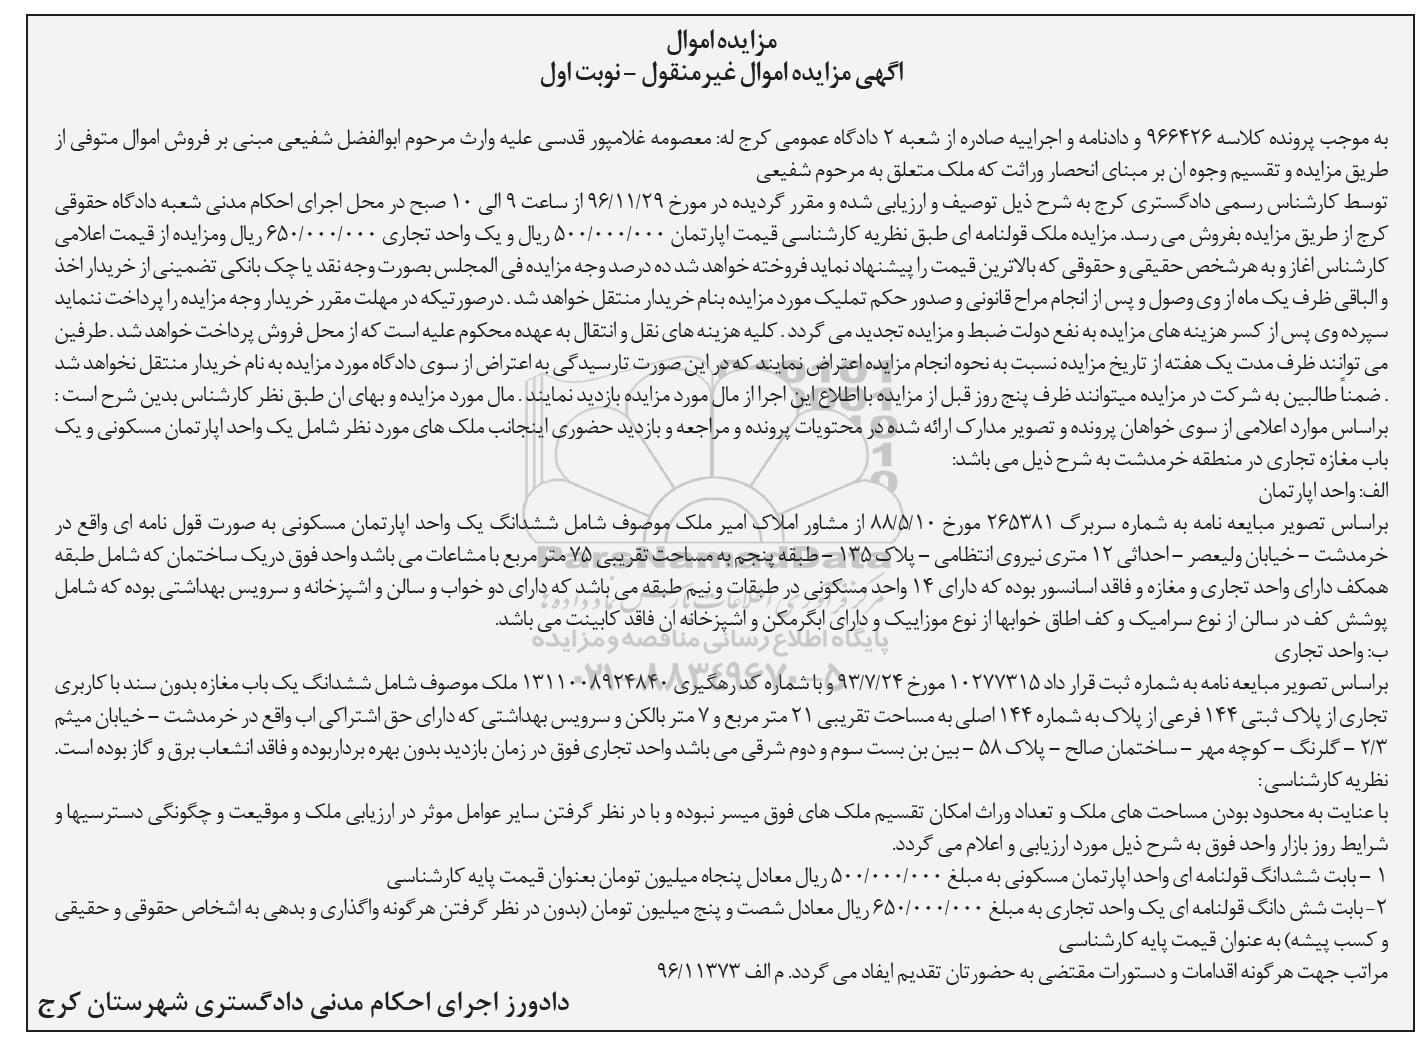 مزایده اموال
اگهی مزایده اموال غیرمنقول – نوبت اول
به موجب پرونده کلاسه ۹۶۶۴۲۶ و دادنامه و اجراییه صادره از شعبه ۲ دادگاه عمومی کرج له: معصومه غلامپور قدسی علیه وارث مرحوم ابوالفضل شفیعی مبنی بر فروش اموال متوفی از
طریق مزایده و تقسیم وجوه ان بر مبنای انحصار وراثت که ملک متعلق به مرحوم شفیعی
توسط کارشناس رسمی دادگستری کرج به شرح ذیل توصیف و ارزیابی شده و مقرر گردیده در مورخ ۹۶/۱۱/۲۹ از ساعت ۹ الی ۱۰ صبح در محل اجرای احکام مدنی شعبه دادگاه حقوقی
کرج از طریق مزایده بفروش می رسد. مزایده ملک قولنامه ای طبق نظریه کارشناسی قیمت اپارتمان ۵۰۰/۰۰۰/۰۰۰ ریال و یک واحد تجاری ۶۵۰/۰۰۰/۰۰۰ ریال ومزایده از قیمت اعلامی
کارشناس اغاز و به هرشخص حقیقی و حقوقی که بالاترین قیمت را پیشنهاد نماید فروخته خواهد شد ده درصد وجه مزایده فی المجلس بصورت وجه نقد یا چک بانکی تضمینی از خریدار اخذ
و الباقی ظرف یک ماه از وی وصول و پس از انجام مراح قانونی و صدور حکم تملیک مورد مزایده بنام خریدار منتقل خواهد شد . درصورتیکه در مهلت مقرر خریدار وجه مزایده را پرداخت ننماید
سپرده وی پس از کسر هزینه های مزایده به نفع دولت ضبط و مزایده تجدید می گردد . کلیه هزینه های نقل و انتقال به عهده محکوم علیه است که از محل فروش پرداخت خواهد شد . طرفین
می توانند ظرف مدت یک هفته از تاریخ مزایده نسبت به نحوه انجام مزایده اعتراض نمایند که در این صورت تا رسیدگی به اعتراض از سوی دادگاه مورد مزایده به نام خریدار منتقل نخواهد شد
. ضمناً طالبین به شرکت در مزایده میتوانند ظرف پنج روز قبل از مزایده با اطلاع این اجرا از مال مورد مزایده بازدید نمایند . مال مورد مزایده و بهای ان طبق نظر کارشناس بدین شرح است :
براساس موارد اعلامی از سوی خواهان پرونده و تصویر مدارک ارائه شده در محتویات پرونده و مراجعه و بازدید حضوری اینجانب ملک های مورد نظر شامل یک واحد اپارتمان مسکونی و یک
باب مغازه تجاری در منطقه خرمدشت به شرح ذیل می باشد:
الف: واحد اپارتمان
براساس تصویر مبایعه نامه به شماره سربرگ ۲۶۵۳۸۱ مورخ ۸۸/۵/۱۰ از مشاور املاک امیر ملک موصوف شامل ششدانگ یک واحد اپارتمان مسکونی به صورت قول نامه ای واقع در
خرمدشت – خیابان ولیعصر – احداثی ۱۲ متری نیروی انتظامی – پلاک ۱۳۵ – طبقه پنجم به مساحت تقریبی ۷۵ متر مربع با مشاعات می باشد واحد فوق دریک ساختمان که شامل طبقه
همکف دارای واحد تجاری و مغازه و فاقد اسانسور بوده که دارای ۱۴ واحد مسکونی در طبقات و نیم طبقه می باشد که دارای دو خواب و سالن و اشپزخانه و سرویس بهداشتی بوده که شامل
پوشش کف در سالن از نوع سرامیک و کف اطاق خوابها از نوع موزاییک و دارای ابگرمکن و اشپزخانه ان فاقد کابینت می باشد.
ب: واحد تجاری
براساس تصویر مبایعه نامه به شماره ثبت قرار داد ۱۰۲۷۷۳۱۵ مورخ ۹۳/۷/۲۴ و با شماره کد رهگیری ۱۳۱۱۰۰۸۹۲۴۸۴۰ ملک موصوف شامل ششدانگ یک باب مغازه بدون سند با کاربری
تجاری از پلاک ثبتی ۱۴۴ فرعی از پلاک به شماره ۱۴۴ اصلی به مساحت تقریبی ۲۱ متر مربع و ۷ متر بالکن و سرویس بهداشتی که دارای حق اشتراکی اب واقع در خرمدشت – خیابان میثم
۲/۳ – گلرنگ – کوچه مهر – ساختمان صالح – پلاک ۵۸ – بین بن بست سوم و دوم شرقی می باشد واحد تجاری فوق در زمان بازدید بدون بهره برداربوده و فاقد انشعاب برق و گاز بوده است.
نظریه کارشناسی :
با عنایت به محدود بودن مساحت های ملک و تعداد وراث امکان تقسیم ملک های فوق میسر نبوده و با در نظر گرفتن سایر عوامل موثر در ارزیابی ملک و موقیعت و چگونگی دسترسیها و
شرایط روز بازار واحد فوق به شرح ذیل مورد ارزیابی و اعلام می گردد.
۱ – بابت ششدانگ قولنامه ای واحد اپارتمان مسکونی به مبلغ ۵۰۰/۰۰۰/۰۰۰ ریال معادل پنجاه میلیون تومان بعنوان قیمت پایه کارشناسی
۲- بابت شش دانگ قولنامه ای یک واحد تجاری به مبلغ ۶۵۰/۰۰۰/۰۰۰ ریال معادل شصت و پنج میلیون تومان (بدون در نظر گرفتن هرگونه واگذاری و بدهی به اشخاص حقوقی و حقیقی
و کسب پیشه) به عنوان قیمت پایه کارشناسی
مراتب جهت هرگونه اقدامات و دستورات مقتضی به حضورتان تقدیم ایفاد می گردد. م الف ۹۶/۱۱۳۷۳
دادورز اجرای احکام مدنی دادگستری شهرستان کرج
ParsNamadData
پایگاه اطلاع رسانی مناقصه و مزایده
۰۲۱-۸۸۳۴۹۶۷۰-۵